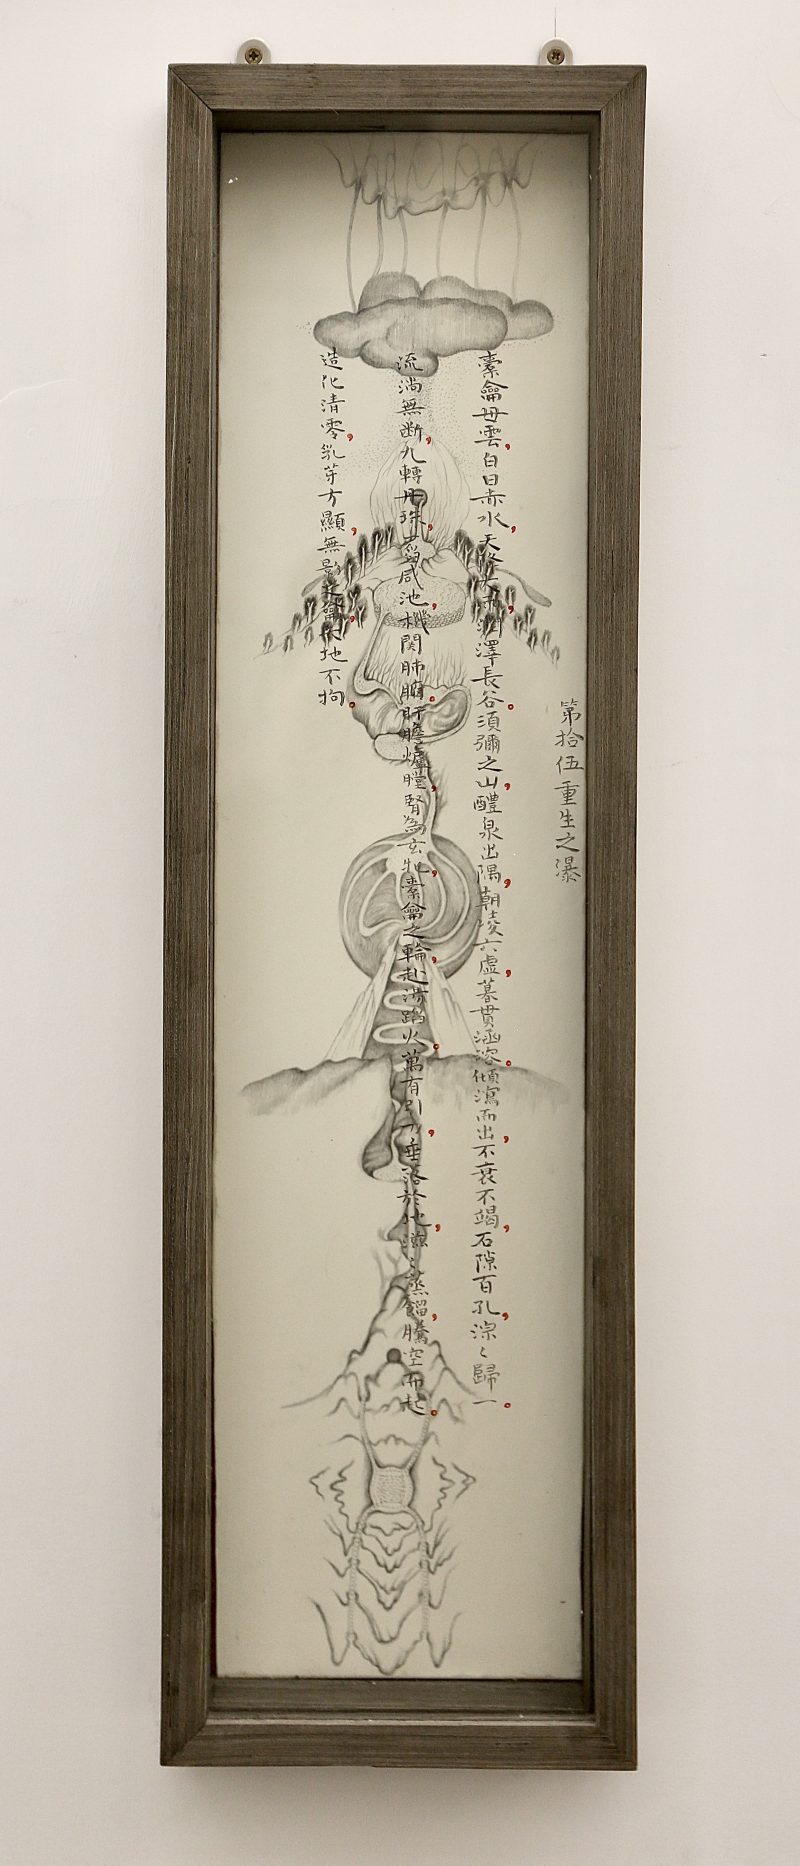 第拾伍重生之瀑
橐龠毋雲，白日赤水，天降，潤澤長谷。須彌之山，醴泉出隅，朝淩六虛，暮貫涵溶。傾瀉而出，不衰不竭，石隙百孔，淙〻歸一。
流淌無斷，九轉丹珠，咸池，機關肺腑。肝膽爐膛，腎為玄牝，橐龠之輪，赴湯蹈火。萬有引力，垂落於地，滋〻蒸餾，騰空而起。
造化清零，乳芽方顯，無影之龠，地不拘。